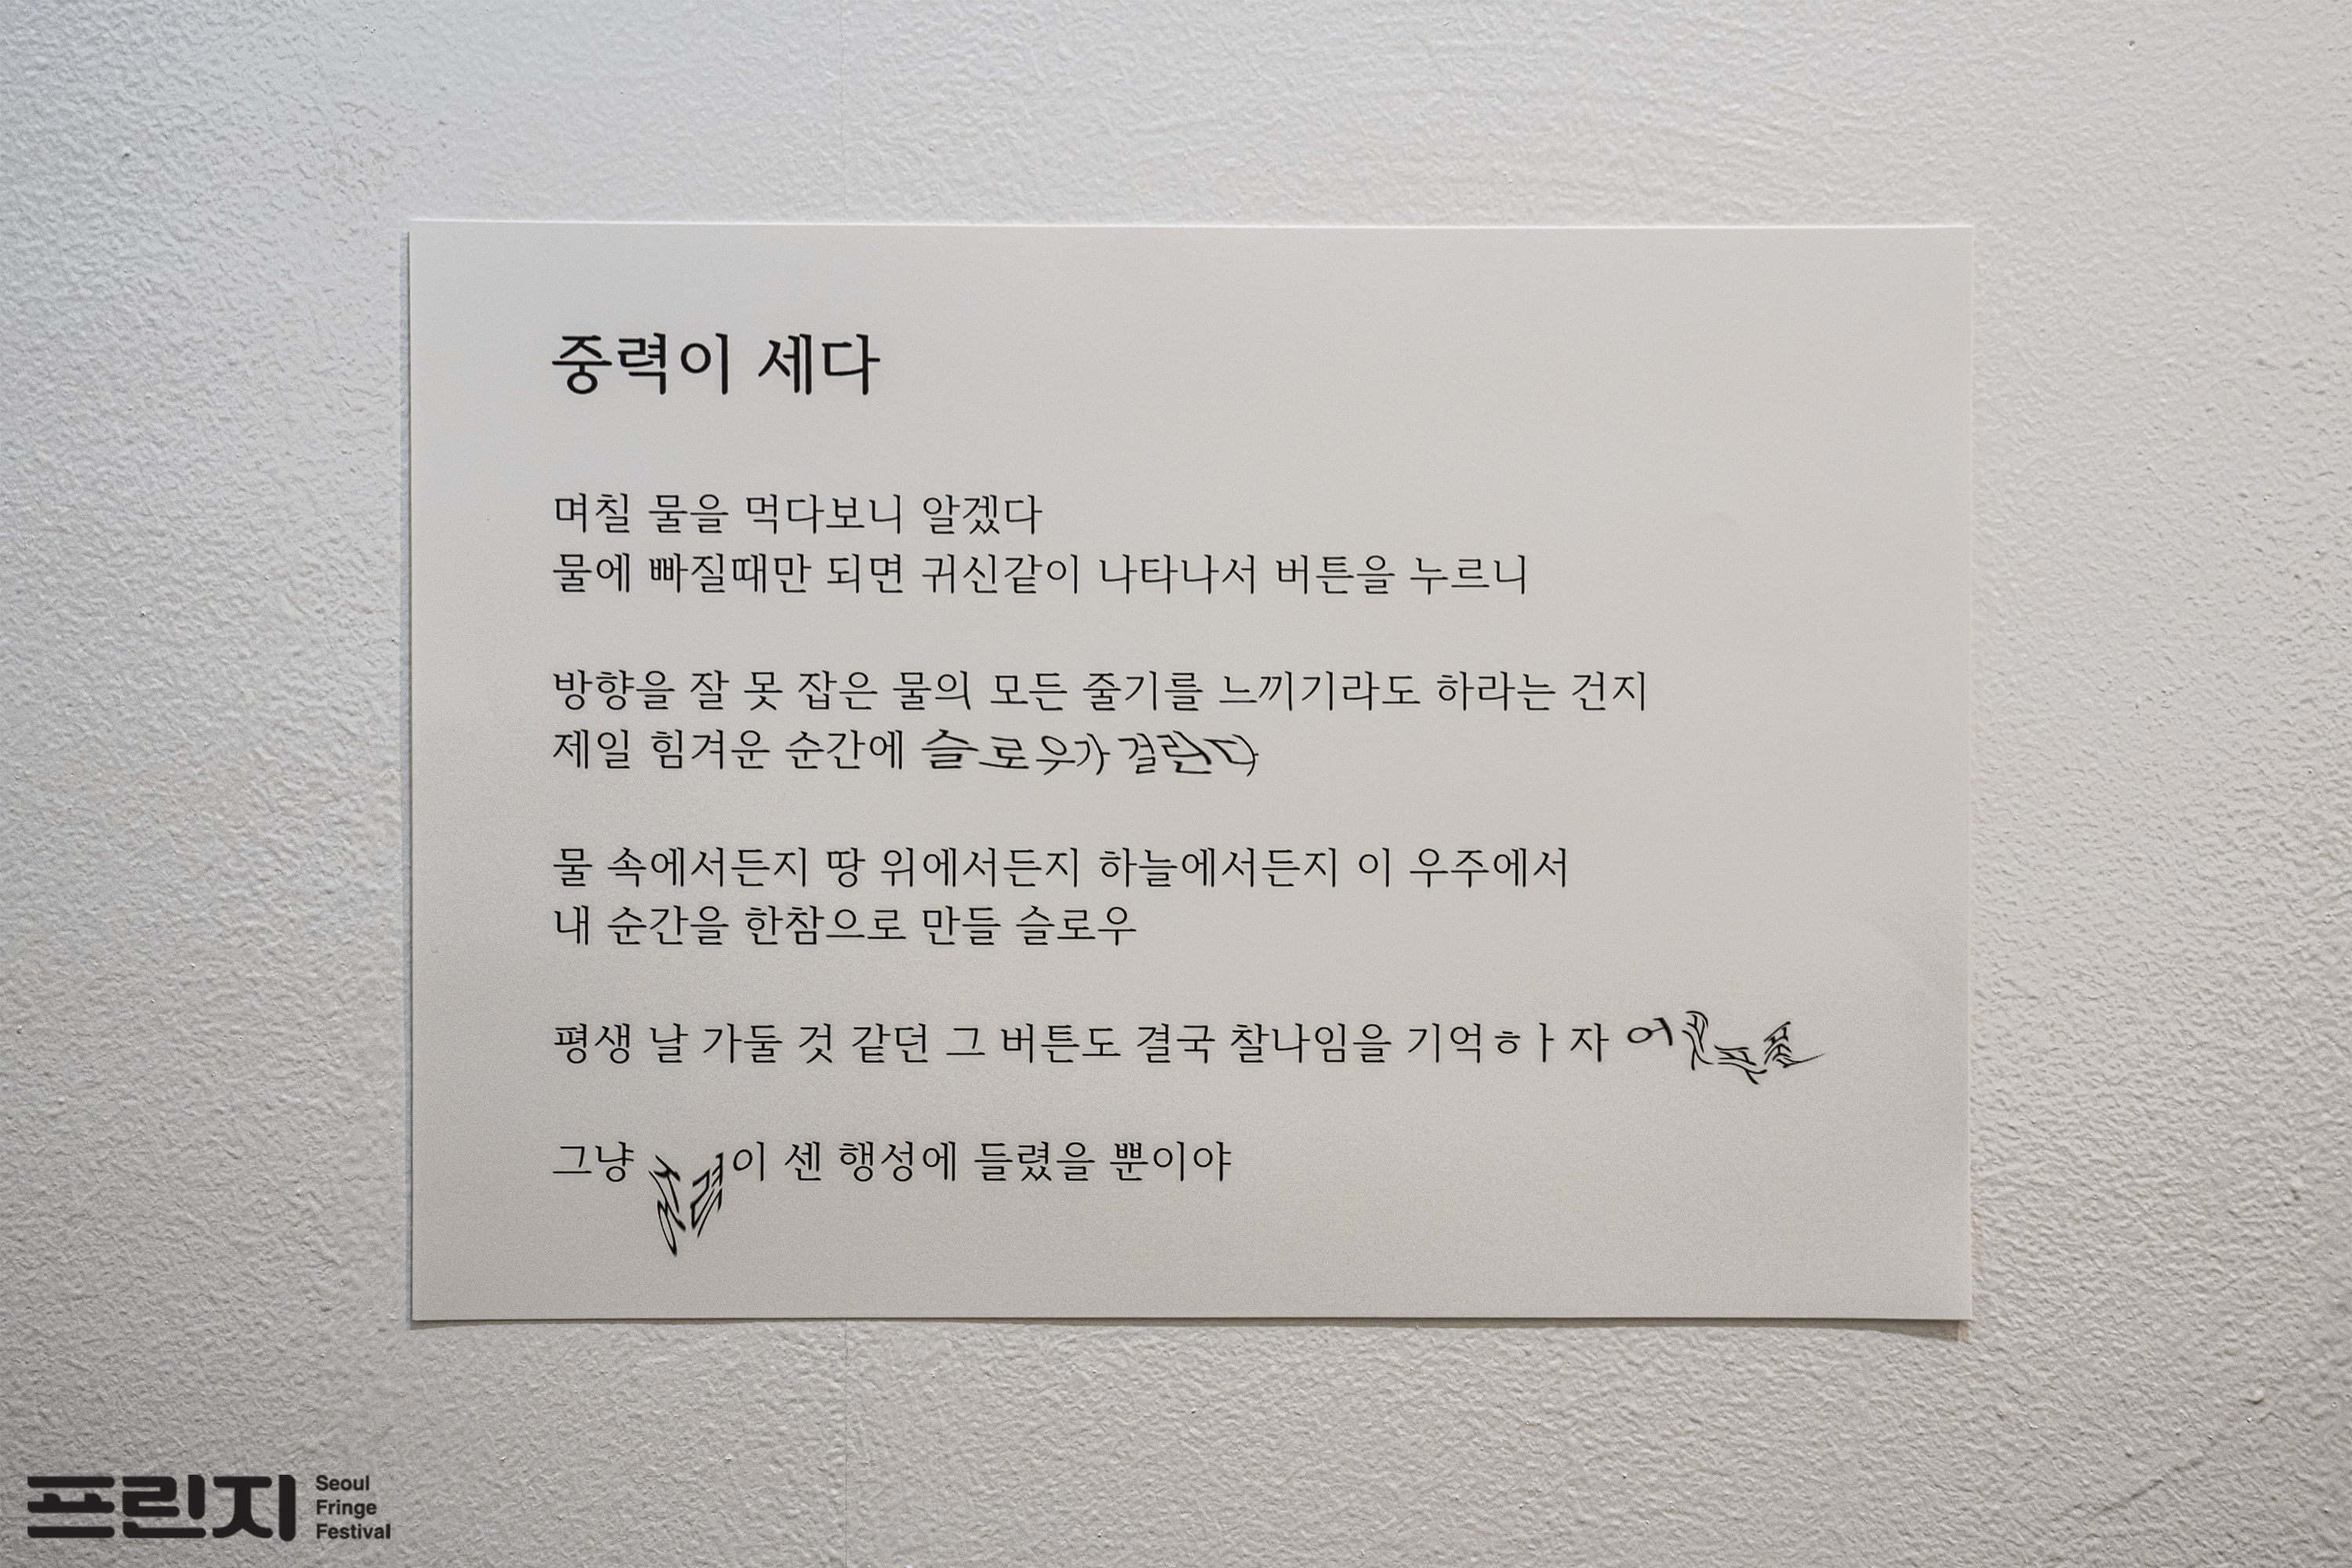 중력이 세다
며칠 물을 먹다보니 알겠다
물에 빠질때만 되면 귀신같이 나타나서 버튼을 누르니
방향을 잘 못 잡은 물의 모든 줄기를 느끼기라도 하라는 건지
제일 힘겨운 순간에 슬로우가 걸린다
물 속에서든지 땅 위에서든지 하늘에서든지 이 우주에서
내 순간을 한참으로 만들 슬로우
평생 날 가둘 것 같던 그 버튼도 결국 찰나임을 기억ㅎㅏ자
그냥 중력이 센 행성에 들렸을 뿐이야
프린지
Seoul
Fringe
Festival